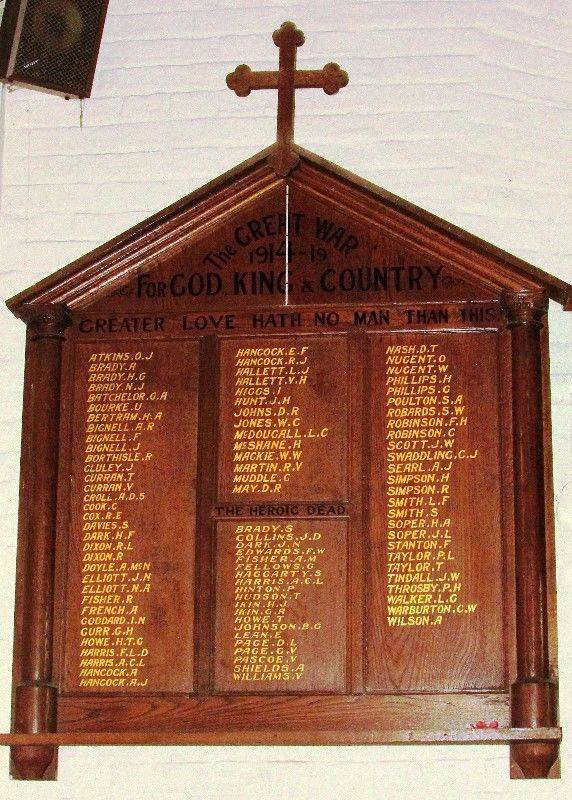 The GREAT WAR
1914-19
FOR GOD, KING & COUNTRY
GREATER LOVE HATH NO MAN THAN THIS
ATKINS.O.J
BRADY.A
BRADY.H.G
BRADY.N.J
BATCHELOR.G.A
BOURKE.U
BERTRAM.H.A
BIGNELL.A.R
BIGNELL.F
BIGNELL.J
BORTHISLE.R
CLULEY.J
CURRAN.T
CURRAN.V
CROLL.A.D.S
COOK.C
COX.R.E
DAVIES.S
DARK.H.F
DIXON.R.L
DIXON.R
DOYLE.A.McN
ELLIOTT.J.N
ELLIOTT.N.A
FISHER.R
FRENCH.A
GODDARD.I.N
GURR.G.H
HOWE.H.T.G
HARRIS.F.L.D
HARRIS.A.C.L
HANCOCK.A
HANCOCK.A.J
HANCOCK.E.F
HANCOCK.R.J
HALLETT.L.J
HALLETT.V.H
HIGGS.I
HUNT.J.H
JOHNS.D.R
JONES.W.C
McDOUGALL.L.C
McSHANE.H
MACKIE.W.W
MARTIN.R.V
MUDDLE.C
MAY.D.R
THE HEROIC DEAD
BRADY.S
COLLINS.J.D
DARK.J.N
EDWARDS.F.W
FISHER.A.M
FELLOWS.G
HAGGARTY.S
HARRIS.A.C.L
HINTON.P
HUDSON.T
IKIN.H.J
IKIN.G.A
HOWE.T
JOHNSON.B.G
LEAN.E
PAGE.D.L
PAGE.G.V
PASCOE.V
SHIELDS.A
WILLIAMS.V
NASH.D.T
NUGENT.O
NUGENT.W
PHILLIPS.H
PHILLIPS.G
POULTON.S.A
ROBARDS.S.W
ROBINSON.F.H
ROBINSON.C
SCOTT.J.W
SWADDLING.C.J
SEARL.A.J
SIMPSON.H
SIMPSON.R
SMITH.L.F
SMITH.S
SOPER.H.A
SOPER.J.L
STANTON.F
TAYLOR.P.L
TAYLOR.T
TINDALL.J.W
THROSBY.P.H
WALKER.L.G
WARBURTON.C.W
WILSON.A